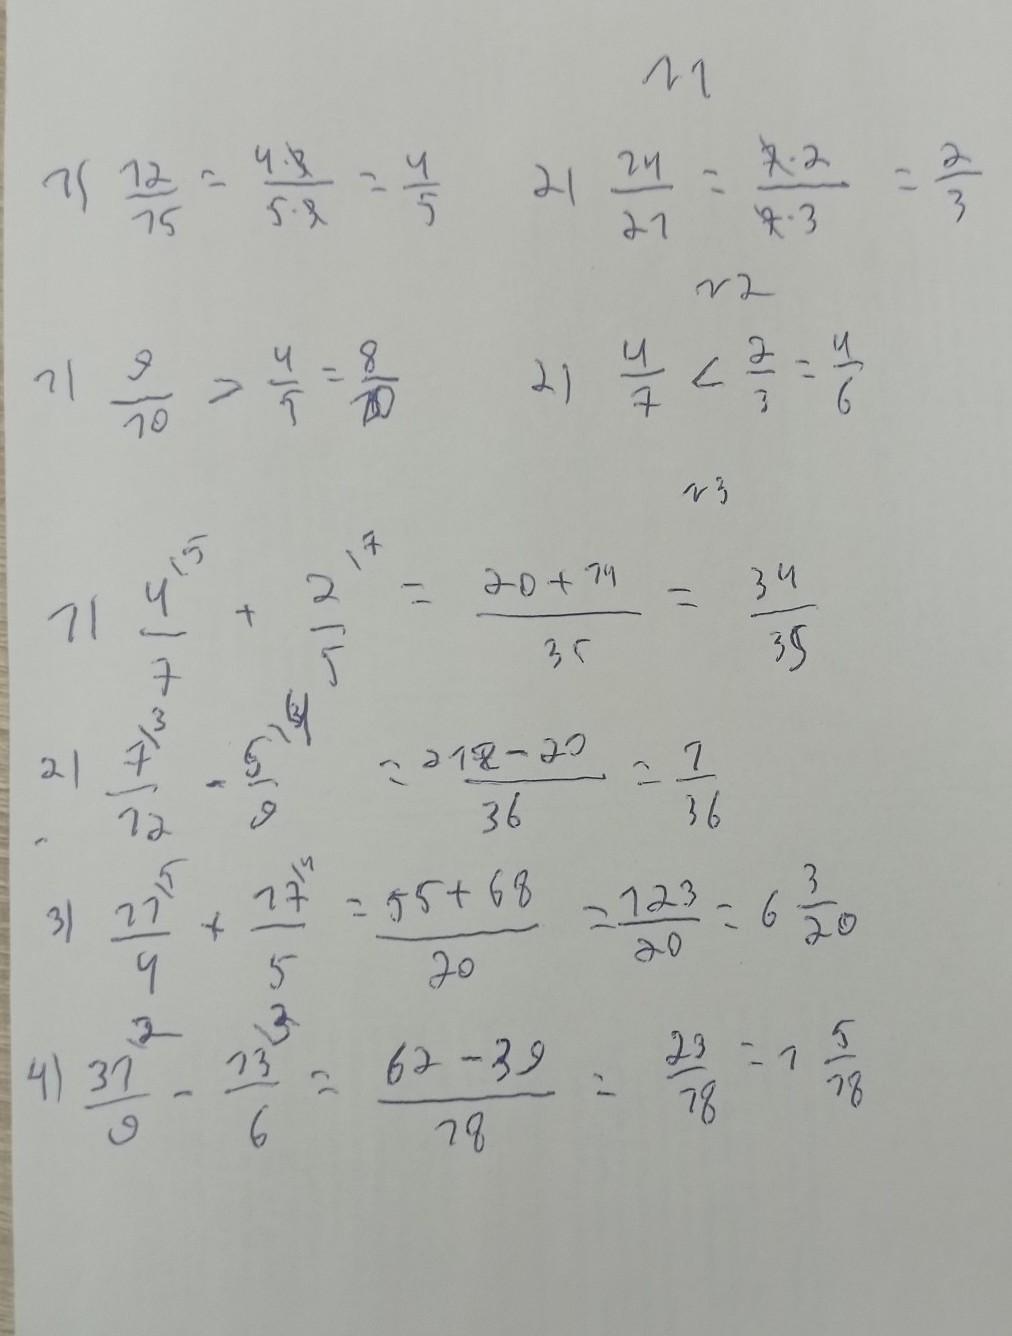 №1
1) 12/15 = 4·3/5·3 = 4/5 2) 14/21 = 7·2/7·3 = 2/3
№2
1) 9/10 > 4/5 = 8/10 2) 4/7 < 2/3 = 4/6
№3
1) 4\5/7 + 2\7/5 = 20+14/35 = 34/35
2) 7\3/12 - 5\4/9 = 21-20/36 = 1/36
3) 11\5/4 + 17\4/5 = 55+68/20 = 123/20 = 6 3/20
4) 31\2/9 - 13\3/6 = 62-39/18 = 23/18 = 1 5/18